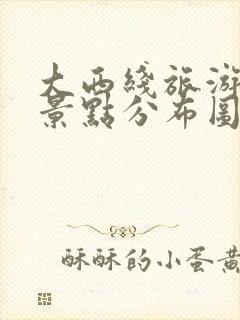 大西綫旅游
景點分布圖
酥酥的小蛋黄